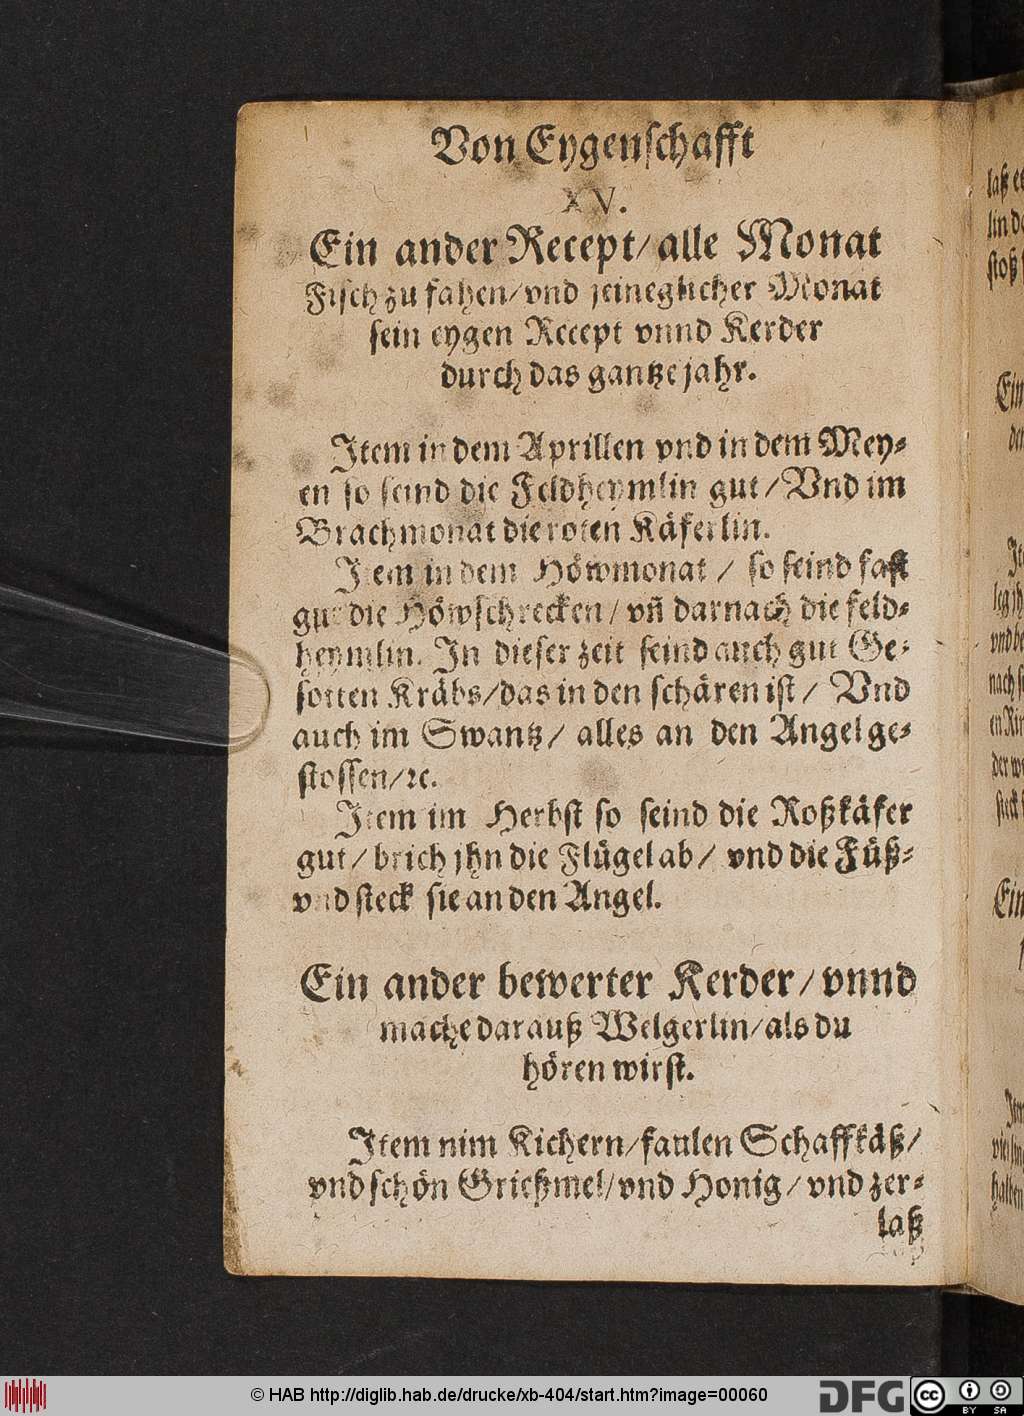 Von Eygenschafft
XV.
Ein ander Recept/ alle Monat
Fisch zu fahen/ vnd jeineglicher Monat
sein eygen Recept vnnd Kerder
durch das gantze jahr.
Item in dem Aprillen vnd in dem Mey-
en so seind die Feldheymlin gut / Vnd im
Brachmonat die roten Käferlin.
Item in dem Höwmonat / so seind fast
gut die Höwschrecken / vñ darnach die feld-
heymlin. In dieser zeit seind auch gut Ge-
sotten Kräbs/ das in den schären ist / Vnd
auch im Swantz/ alles an den Angel ge-
stossen/ ꝛc.
Item im Herbst so seind die Roßkäfer
gut/ brich jhn die Flügel ab/ vnd die Füß-
vnd steck sie an den Angel.
Ein ander bewerter Kerder/ vnnd
mache darauß Welgerlin/ als du
hören wirst.
Item nim Kichern/ faulen Schaffkäß/
vnd schön Grießmel/ vnd Honig / vnd zer-
laß
laß
lin
stoß
Ein
leg
nach
der
steck
Ein
halben
© HAB http://diglib.hab.de/drucke/xb-404/start.htm?image=00060
DFG
cc
BY SA